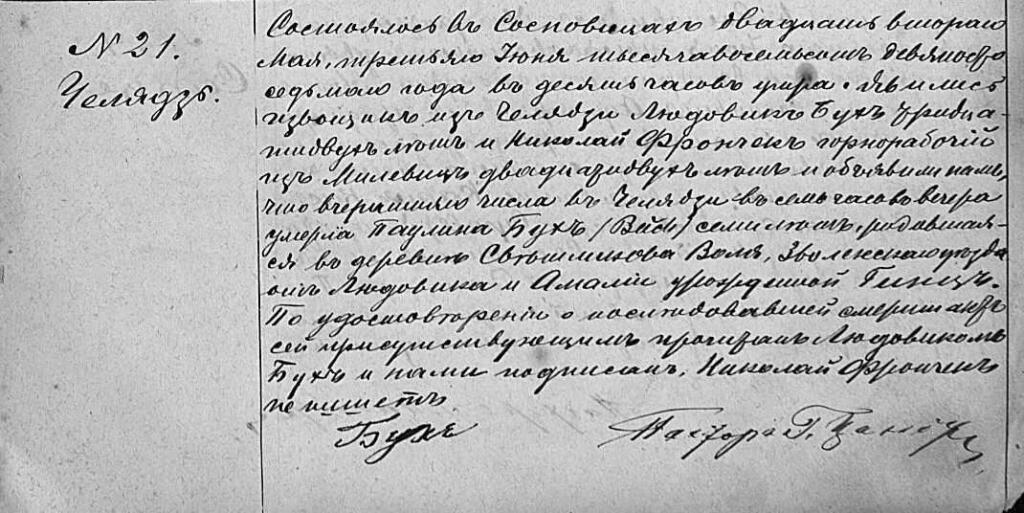 № 21.
Челядзь.
Состоялось въ Сосновицахъ двадцать втораго
Мая, третьяго Іюня тысяча восемьсотъ девяносто
седьмаго года въ десять часовъ утра. Явились
извощикъ изъ Челядзи Людовикъ Бухъ тридца-
тидвухъ лѣтъ и Николай Фрончекъ горнорабочій
изъ Милевицъ двадцатидвухъ лѣтъ и объявили намъ,
что вчерашняго числа въ Челядзи въ семь часовъ вечера
умерла Паулина Бухъ (Buch) семи лѣтъ, родившая-
ся въ деревнѣ Воля, уѣзда
отъ Людовика и Амаліи урожденной Гинцъ.
По удостовѣреніи о послѣдовавшей смерти актъ
сей присутствующимъ прочитанъ Людовикомъ
Бухъ и нами подписанъ, Николай Фрончекъ
не пишетъ.
Бухъ
Пасторъ Г.